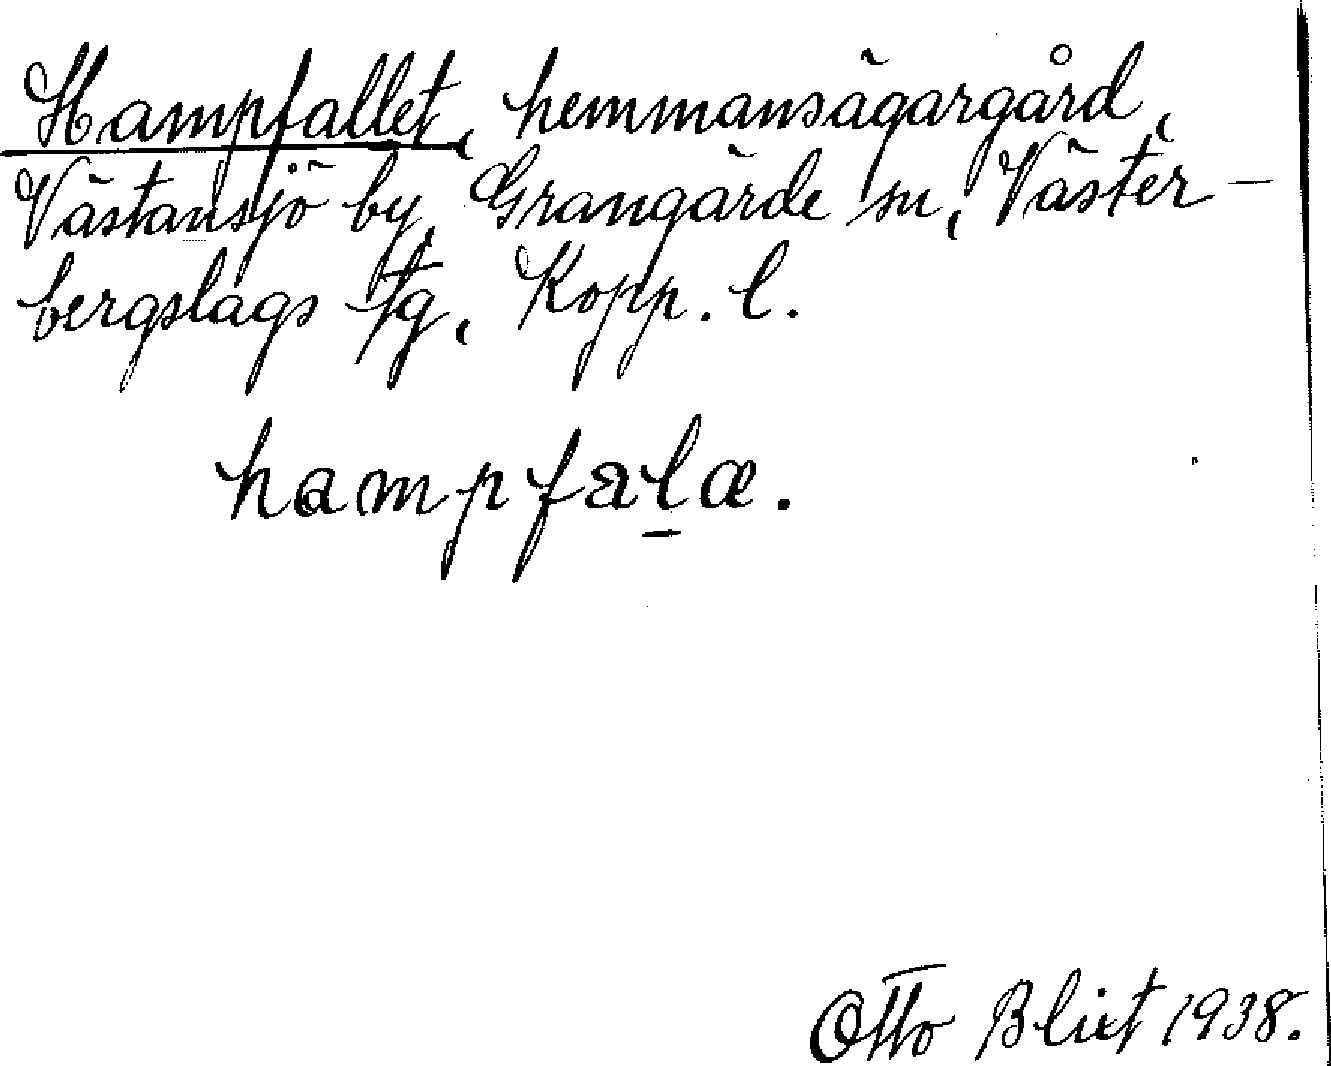 Hampfallet, hemmansägargård,
Västansjö by, Grangärde sn, Väster-
bergslags tg, Kopp. l.
hampfalæ.
Otto Blixt 1938.